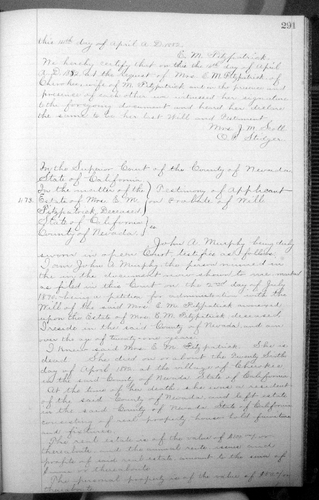 291
this 10th day of April A.D. 1882.
E. M. Fitzpatrick
We hereby certify that on this the 10th day of April
A.D. 1882 at the request of Mrs. E. M. Fitzpatrick of
Cherokee wife of M. Fitzpatrick and in the presence and
presence of each other we witnessed her signature
to the foregoing document and heard her declare
the same to be her last Will and Testament.
Mrs. J. M. Scott
In the Superior Court of the County of Nevada
State of California
In the matter of the Testimony of Applicant
Estate of Mrs. E. M. on Probate of Will
Fitzpatrick Deceased
State of California
County of Nevada ss
John A. Murphy being duly
sworn in open Court, testifies as follows:
I am John A. Murphy the person named
in the document now shown to me, marked
as filed in this Court on the 2nd day of July
being a petition for administration with the
Will of the said Mrs. E. M. Fitzpatrick annexed
upon the Estate of Mrs. E. M. Fitzpatrick deceased.
I reside in the said County of Nevada and am
over the age of twenty-one years.
I knew said Mrs. E. M. Fitzpatrick. She is
dead. She died on or about the
day of April 1882 at the village of Cherokee
in the said County of Nevada State of California
At the time of her death she was a resident
of the said County of Nevada and left estate
in the said County of Nevada State of California
consisting of real property house hold furniture
and fixtures.
The real estate is of the value of
thereabouts and the annual rents issues and
profits of said real estate amount to the sum of
or thereabouts
The personal property is of the value of